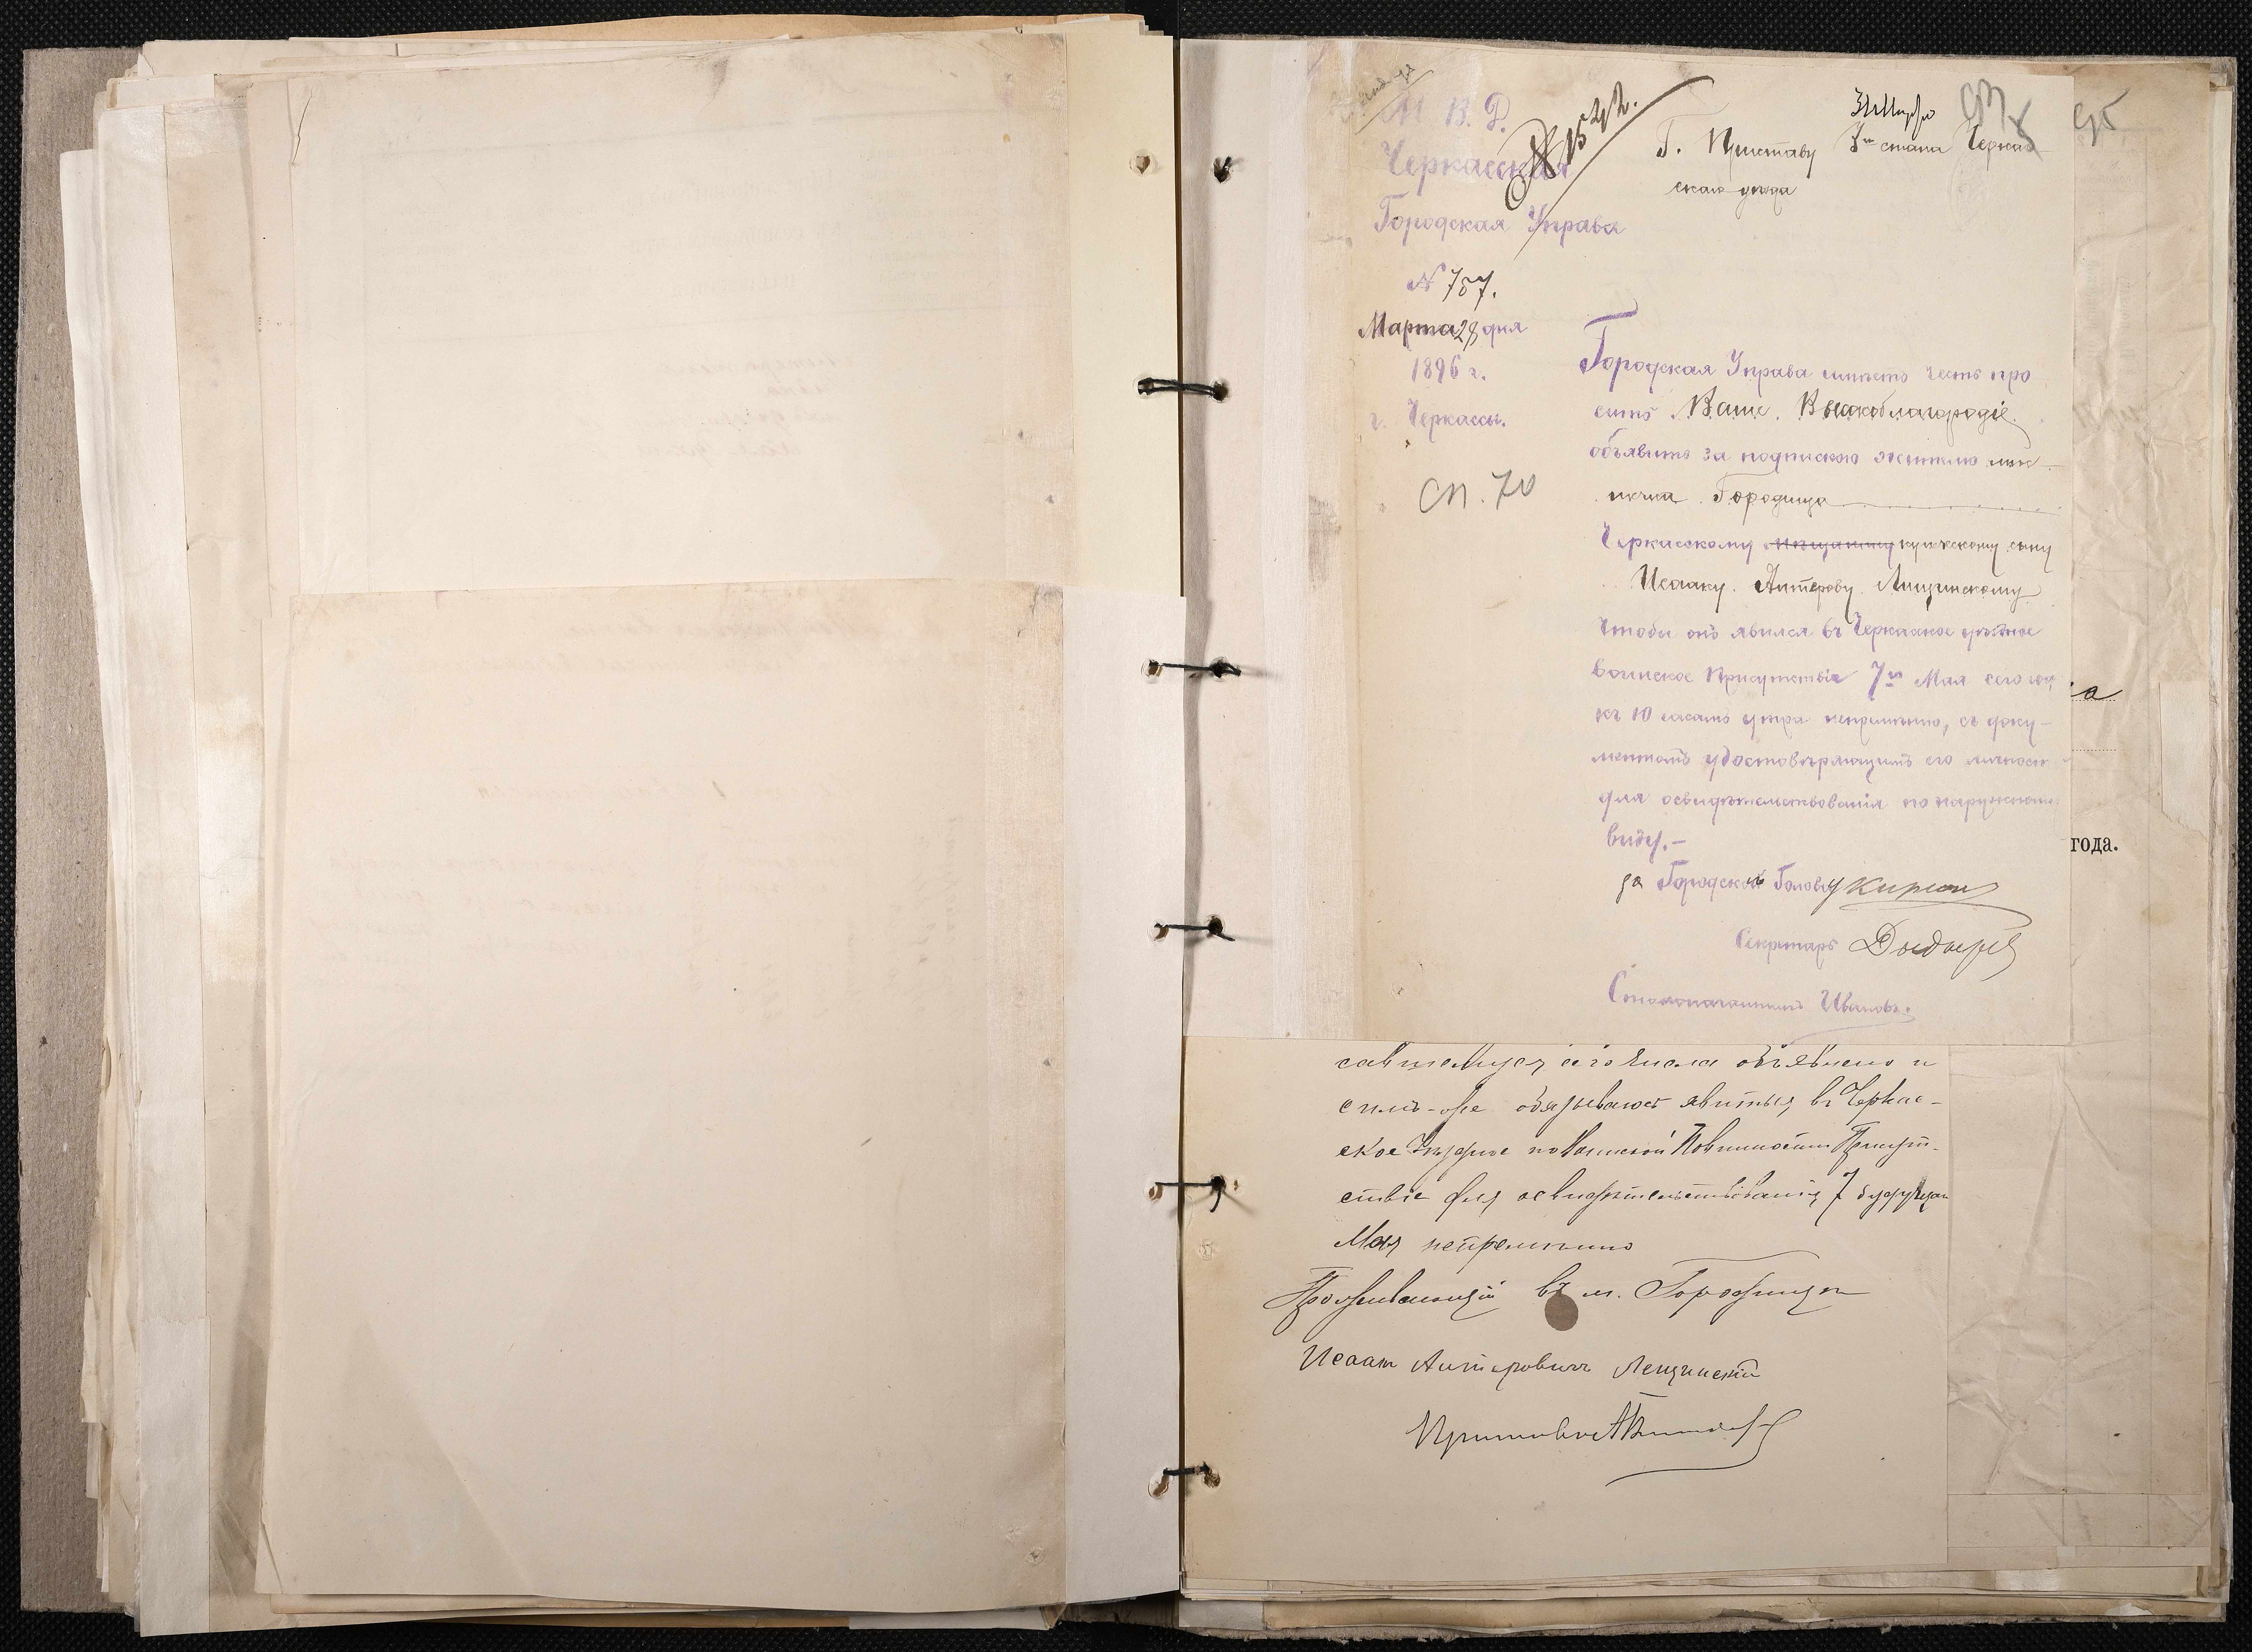 М. В. Д.
Черкасская
Городская Управа
№ 757.
Марта 28 дня
1896 г.
г. Черкассы.
СП. 70
1522.
Г. Приставу 3го стана Черкас
скаго уѣзда
95
Городская Управа имѣетъ честь про
ситъ Ваше Высокоблагородіе
объявить за подпискою жителю мѣс-
течка Городища
Черкасскому мѣщанину купеческому сыну
Исааку Антерову Лищинскому
чтобы онъ явился въ Черкасское уѣздное
воинское Присутствіе 7го Мая сего года
къ 10 часамъ утра непремѣнно, съ доку-
ментомъ удостовѣряющимъ его личность
для освидѣтельствованія по наружному
виду.-
за Городской Голова
Секретарь
Столоначальникъ Ивановъ.
а
года.
объявлено и
съ нимъ-же обязываюсь явиться въ Черкас-
ское Уѣздное по Воинской Повинности Присут-
ствіе для освидѣтельствованія 7 будущаго
Мая непремѣнно
Проживающій въ м. Городищѣ
Исаакъ Антеровичъ Лещинскій